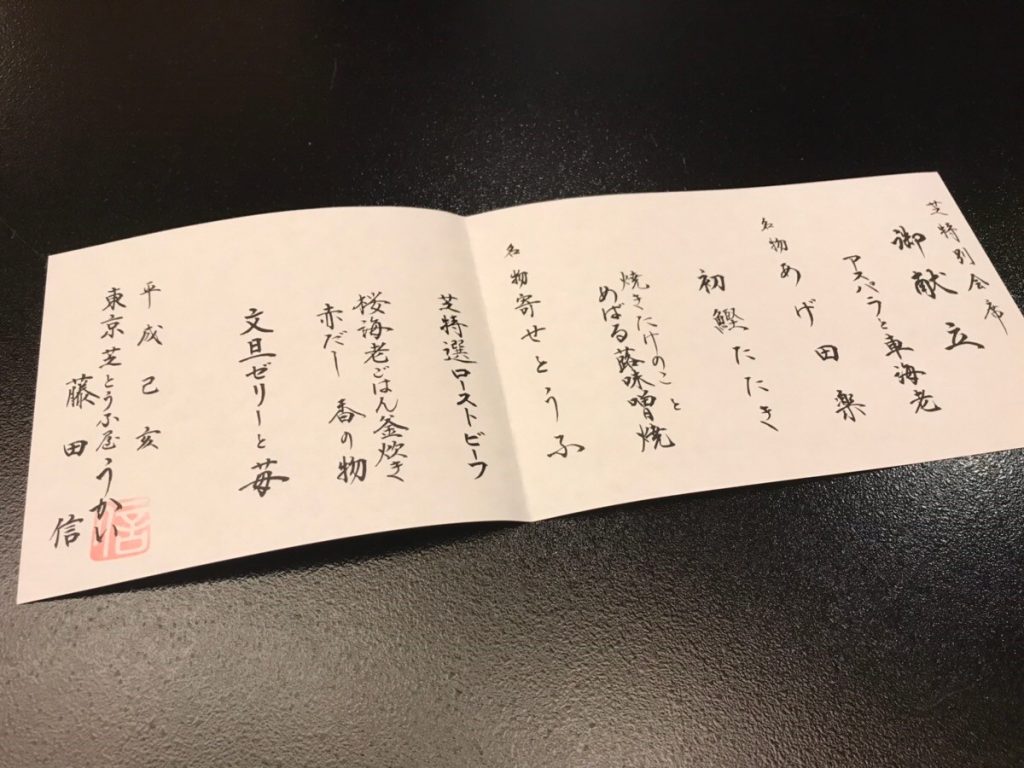 芝特別会席
御献立
アスパラと車海老
名物 あげ田楽
初鰹たたき
焼きたけのこと
めばる蕗味噌焼
名物 寄せとうふ
芝特選ローストビーフ
桜海老ごはん釜炊き
赤だし 香の物
文旦ゼリーと苺
平成己亥
東京芝とうふ屋うかい
藤田 信
信